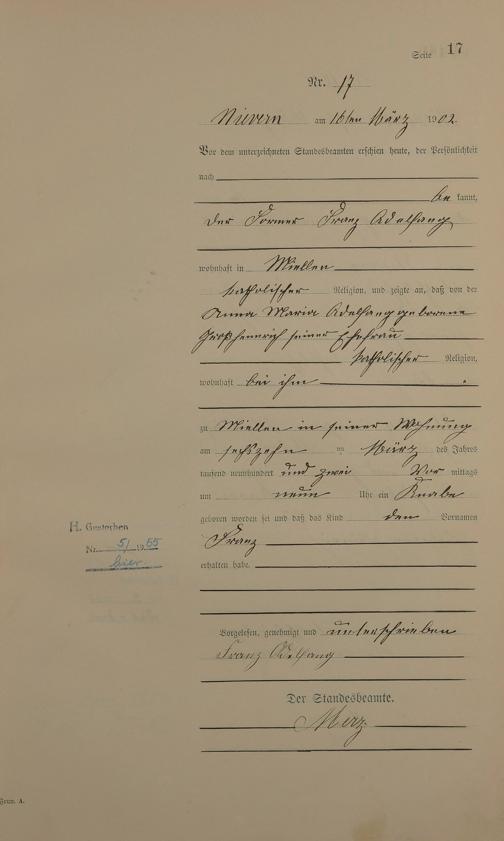 Seite 17
Nr. 17
Nievern am 16ten März 1902
Vor dem unterzeichneten Standesbeamten erschien heute, der Persönlichkeit
nach
be kannt,
der Former Franz Adelfang
wohnhaft in Miellen
katholischer Religion, und zeigte an, daß von der
Anna Maria Adelfang geborene
Großheinrich seiner Ehefrau
katholischer Religion,
wohnhaft bei ihm
zu Miellen in seiner Wohnung
am sechszehn en März des Jahres
tausend neunhundert und zwei Vor mittags
um neun Uhr ein Knabe
geboren worden sei und daß das Kind den Vornamen
Franz
erhalten habe.
H. Gestorben
Nr. 5/1955
hier
Vorgelesen, genehmigt und unterschrieben
Franz Adelfang
Der Standesbeamte.
Merz
Form. A.